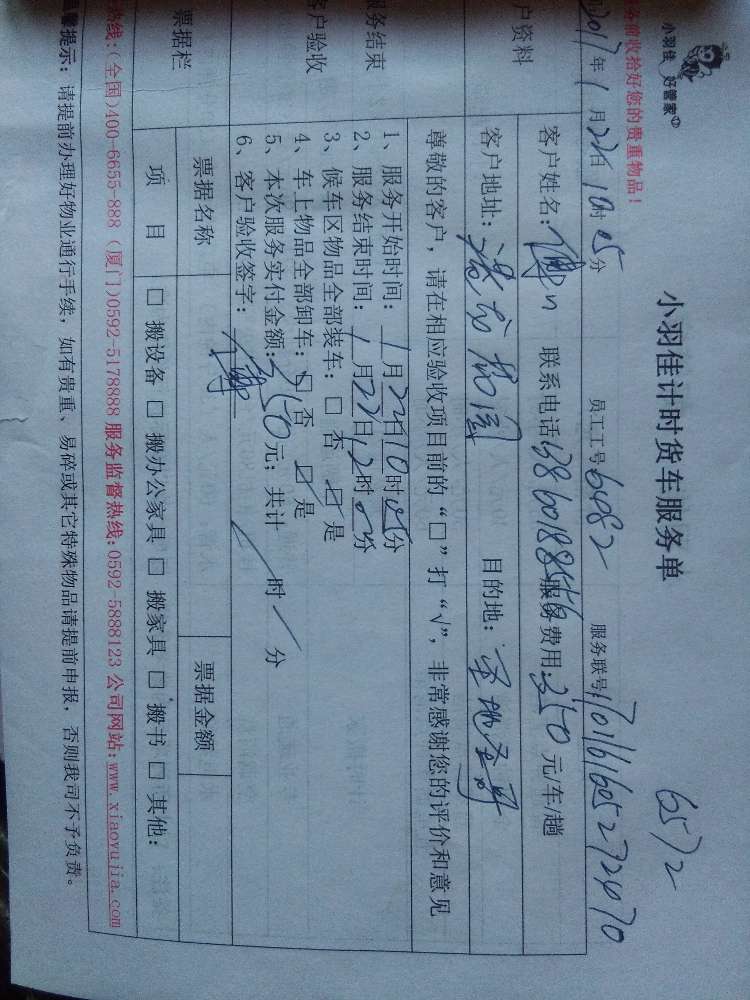 小羽佳 好管家
小羽佳计时货车服务单
6572
务前收拾好您的贵重物品!
2017年1月22日10时05分 员工工号6482 服务联号
户资料 客户姓名: 联系电话 服务费用:350元/车/趟
客户地址: 目的地:
尊敬的客户,请在相应验收项目前的“□”打“√”,非常感谢您的评价和意见
服务结束
客户验收
1、服务开始时间:1月22日10时05分
2、服务结束时间:1月22日12时0分
3、候车区物品全部装车:□ 否 ☑ 是
4、车上物品全部卸车:□ 否 ☑ 是
5、本次服务实付金额:350元;共计 / 时 / 分
6、客户验收签字:
票据栏 票据名称 票据金额
项 目 □ 搬设备 □ 搬办公家具 □ 搬家具 □ 搬书 □ 其他:
热线:(全国)400-6655-888 (厦门)0592-5178888 服务监督热线:0592-5888123 公司网站:www.xiaoyujia.com
温馨提示:请提前办理好物业通行手续,如有贵重、易碎或其它特殊物品请提前申报,否则我司不予负责。